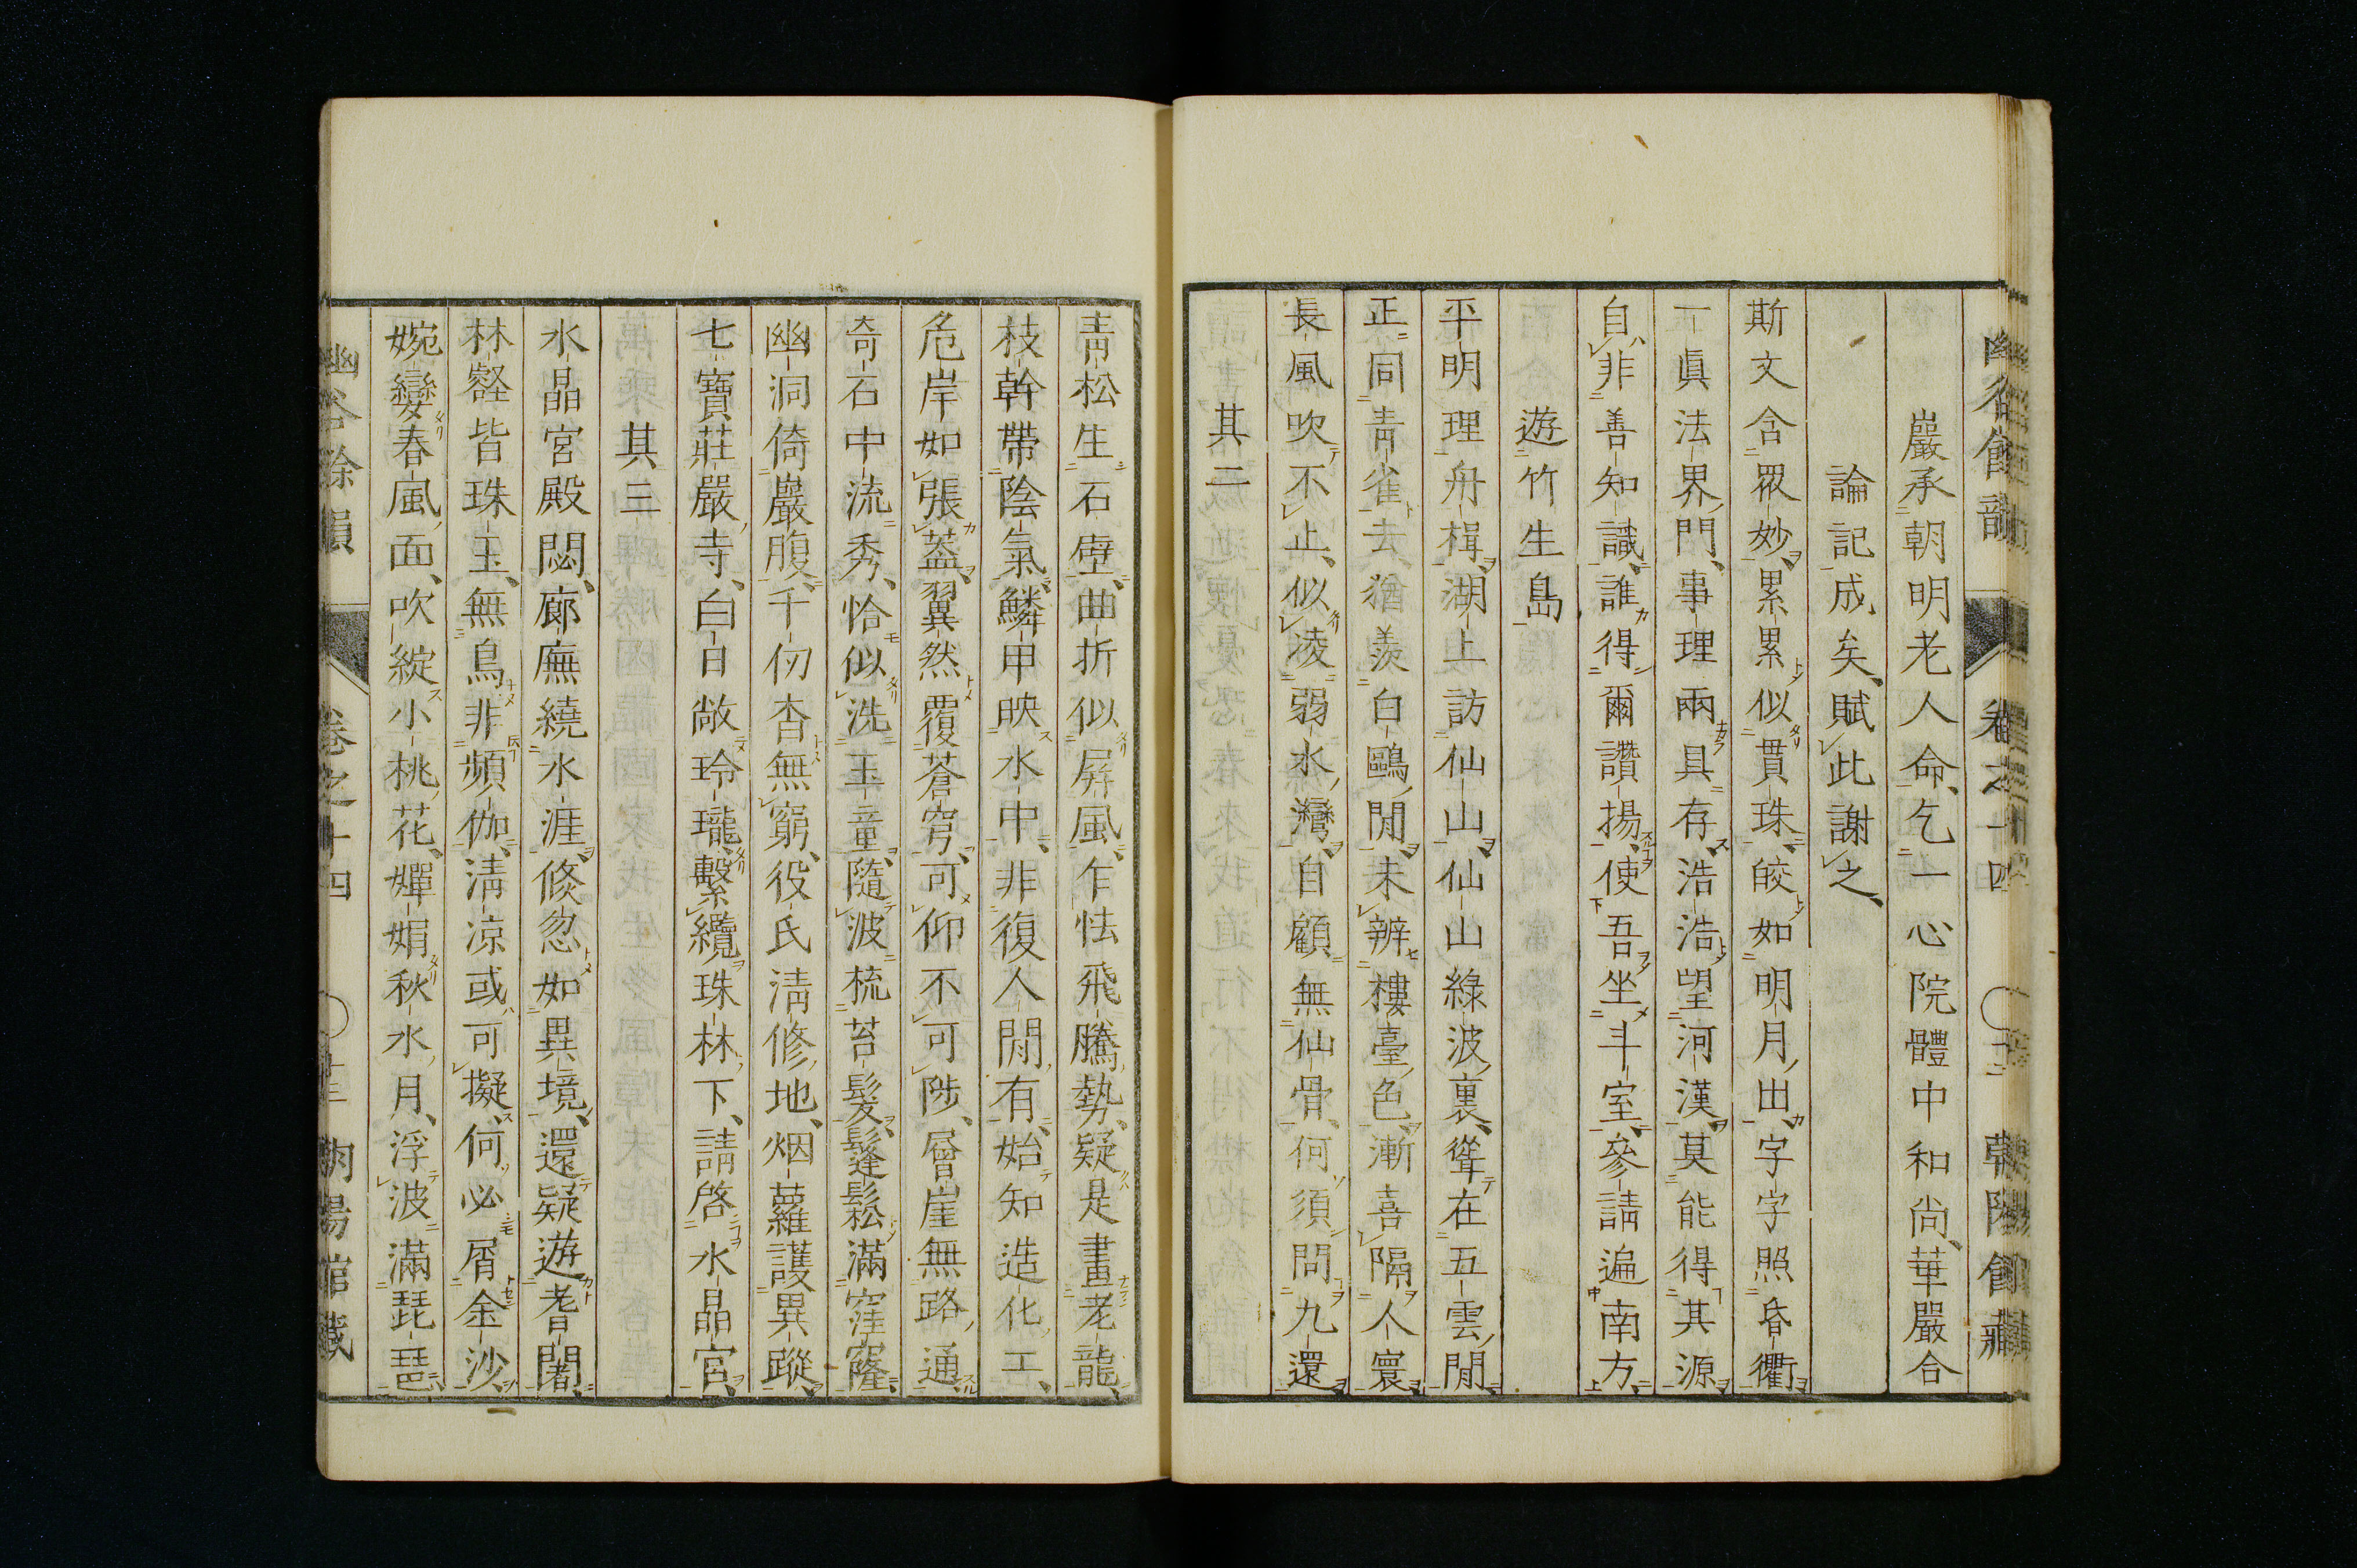 巖承朝明老人命乞一心院體中和尚華嚴合
論記成矣賦此謝之
斯文含衆妙累累似貫珠皎如明月出字字照昏衢
一眞法界門事理兩具存浩浩望河漢莫能得其源
自非善知識誰得爾讚揚使吾坐斗室參請遍南方
遊竹生島
平明理舟楫湖上訪仙山仙山綠波裏聳在五雲閒
正同靑雀去猶羨白鷗閒未辨樓臺色漸喜隔人寰
長風吹不止似凌弱水灣自顧無仙骨何須問九還
其二
靑松生石壁曲折似屛風乍怯飛騰勢疑是畫老龍
枝幹帶陰氣鱗甲映水中非復人閒有始知造化工
危岸如張蓋翼然覆蒼穹可仰不可陟層崖無路通
奇石中流秀恰似洗玉童隨波梳苔髮鬔鬆滿窪窿
幽洞倚巖腹千仞杳無窮役氏淸修地烟蘿護異蹤
七寶莊嚴寺白日敞玲瓏繫纜珠林下請啓水晶宮
其三
水晶宮殿閟廊廡繞水涯倐忽如異境還疑遊耆闍
林壑皆珠玉無鳥非頻伽淸凉或可擬何必屑金沙
婉孌春風面吹綻小桃花嬋娟秋水月浮波滿琵琶
幽谷餘韻 卷之十四 朝陽館藏